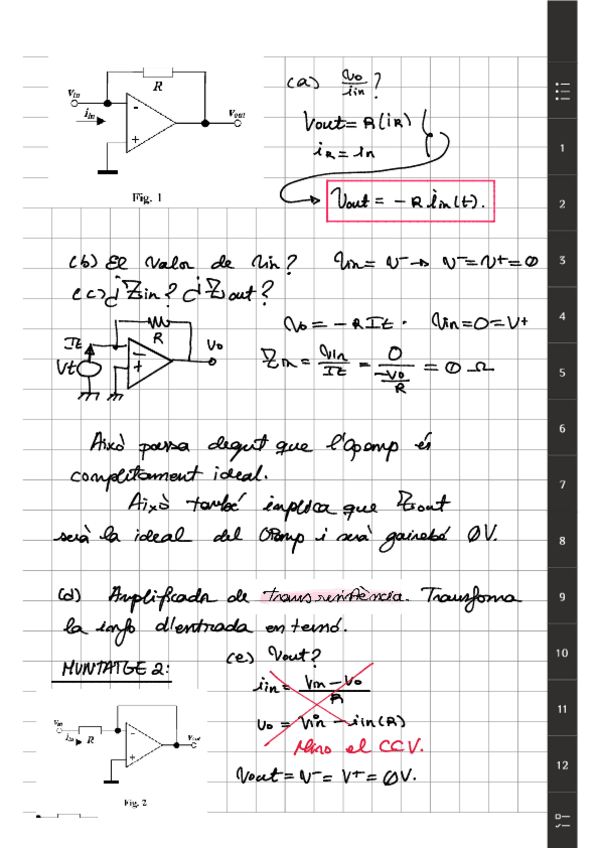 (a) Vo/iin?
R
vin
iin
-
+
vout
Vout = R(iR)
iR = in
Fig. 1
Vout = -R iin(t).
(b) El valor de Vin? Vin = V- → V- = V+ = 0
(c) ¿Zin? ¿Zout?
Vo = -R It. Vin = 0 = V+
It
R
Vo
Vt
-
+
Zin = Vin/It = 0/(-Vo/R) = 0 Ω
Això passa degut que l'Opamp és
completament ideal.
Això també implica que Zout
serà la ideal del OPamp i serà gairebé 0V.
(d) Amplificador de transresistència. Transforma
la info d'entrada en tensió.
MUNTATGE 2:
(e) Vout?
iin = (Vin - Vo)/R
Vo = Vin - iin(R)
Miro el CCV.
Vout = V- = V+ = 0V.
vin
iin
R
-
+
vout
Fig. 2
1
2
3
4
5
6
7
8
9
10
11
12